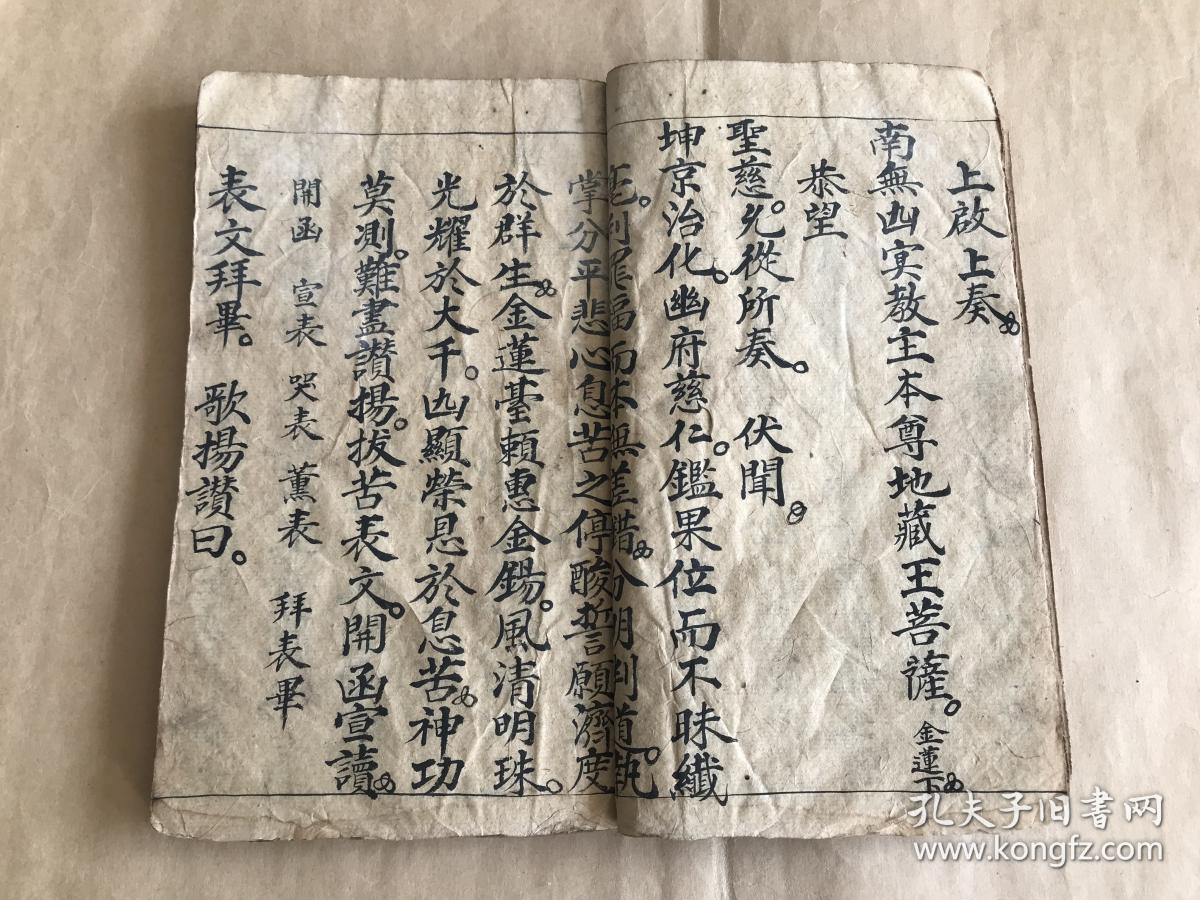 上啟上奏
南無凶冥教主本尊地藏王菩薩。金蓮下
恭望
聖慈。允從所奏。 伏聞。
坤京治化。幽府慈仁。鑑果位而不昧纖
罪福而本無差錯 明判道。執
掌分平悲心息苦之停酸誓願濟度
於群生金蓮臺賴惠金錫。風清明珠。
光耀於大千。凶顯榮恩於息苦神功
莫測。難盡讚揚。拔苦表文。開函宣讀
開函 宣表 哭表 薰表 拜表畢
表文拜畢。 歌揚讚曰。
孔夫子旧书网
www.kongfz.com